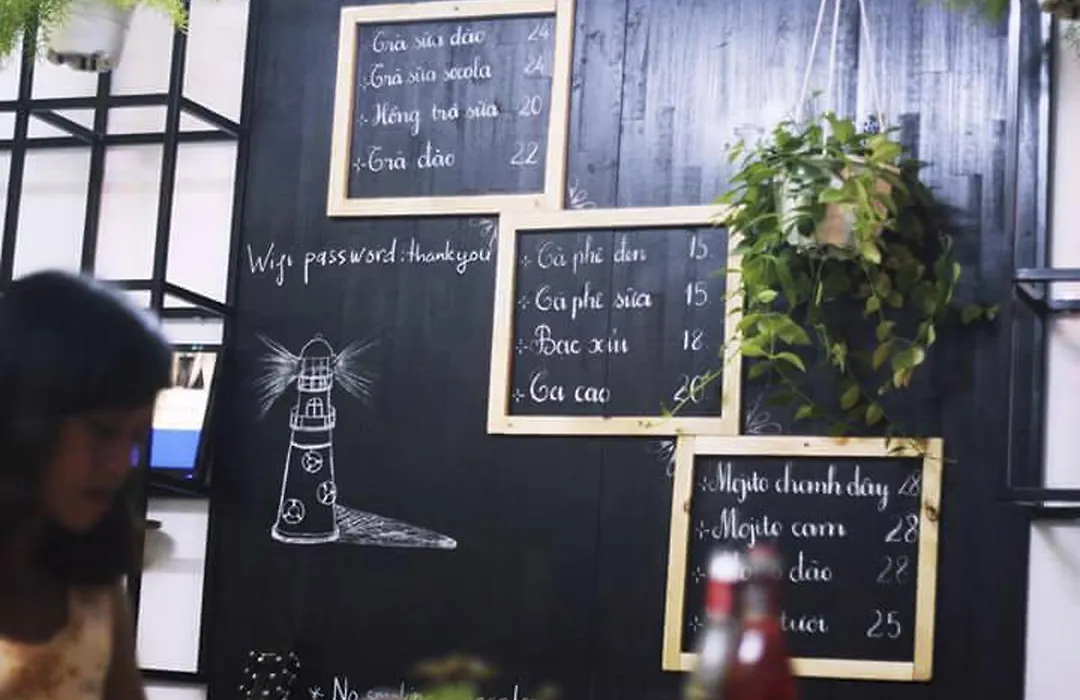 Trà sữa đào 24
Trà sữa socola 24
Hồng trà sữa 20
Trà đào 22
Wifi password:thankyou
Cà phê đen 15
Cà phê sữa 15
Bạc xỉu 18
Ca cao 20
Mojito chanh dây 28
Mojito cam 28
đào 28
tươi 25
* No